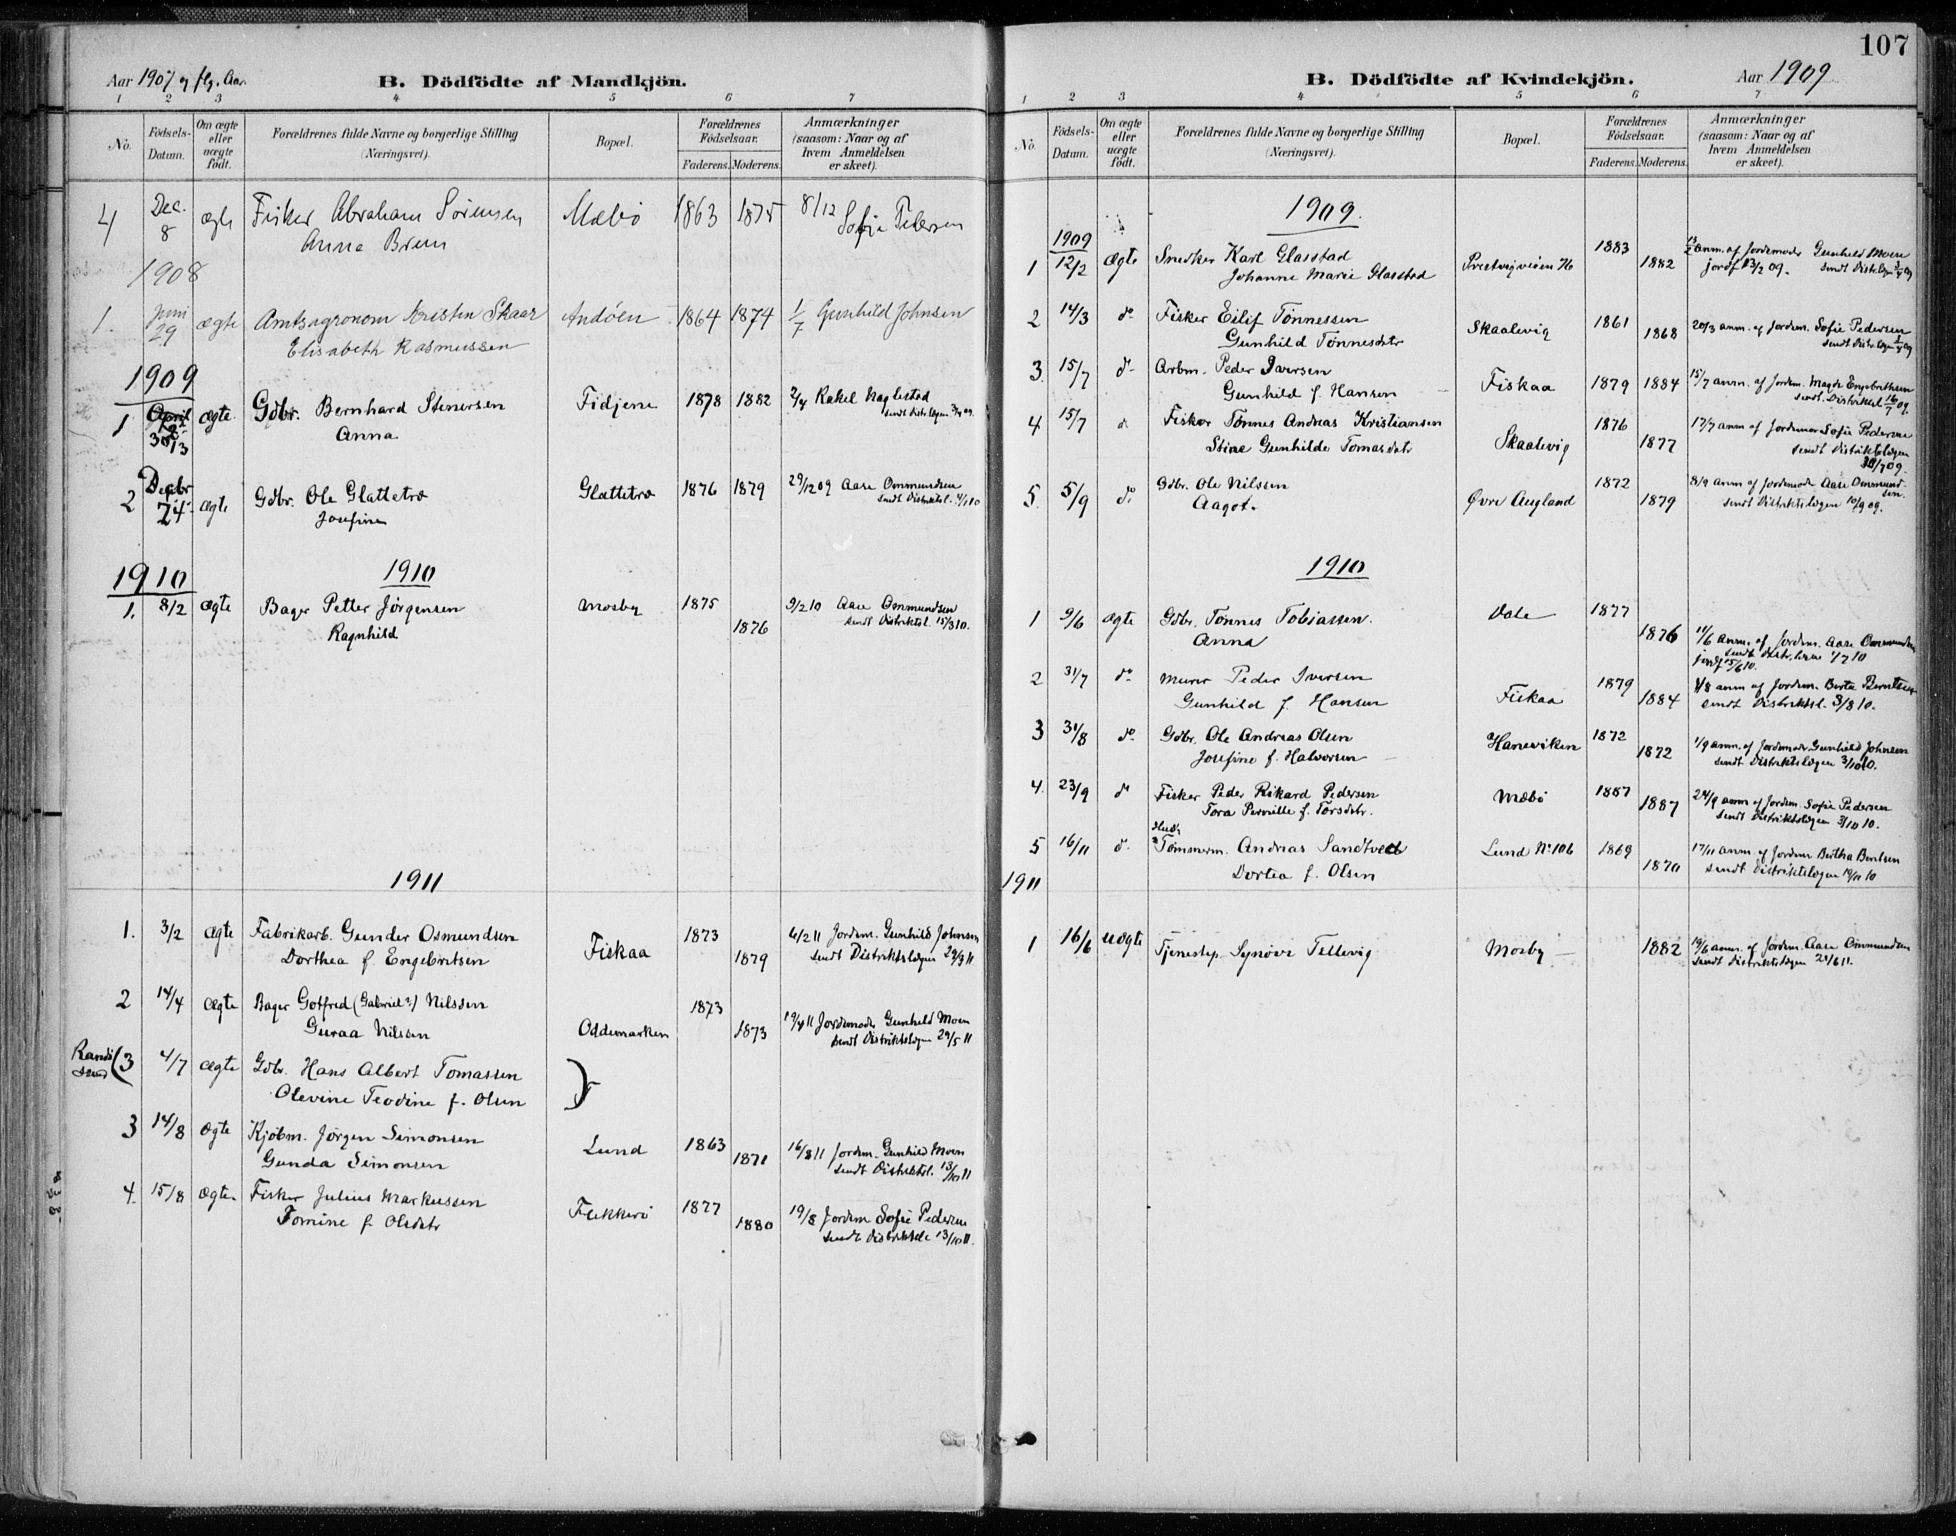 107
Aar 1907 og flg. Aar.
B. Dödfödte af Mandkjön.
1 2 3 4 5 6 7
No.
Födsels-Datum.
Om ægte eller uægte födt.
Forældrenes fulde Navne og borgerlige Stilling (Næringsvei).
Bopæl.
Forældrenes Födselsaar.
Faderens. Moderens.
Anmærkninger (saasom: Naar og af hvem Anmeldelsen er skeet).
4 Dec. 8 ægte Fisker Abraham Sörensen Mæbö 1863 1875 8/12 Sofie Pedersen
Anna Breum
1908
1. Juni 29 ægte Amtsagronom Kristen Skaar Andöen 1864 1874 1/7 Gunhild Johnsen
Elisabeth Rasmussen
1909
1 30/3 ægte Gdbr. Bernhard Stenersen Fidjene 1878 1882 Rakel Naglestad
Anna sendt Distr.lægen
2 Decbr 24 ægte Gdbr. Ole Glattetrø Glattetrø 1876 1879 29/12 09 Aase Ommundsen
Josefine sendt Distriktsl. 4/1 10
1910 1910
1. 8/2 ægte Bager Petter Jørgensen Mosby 1875 9/2 10 Aase Ommundsen
Ragnhild 1876 sendt Distriktsl. 15/3 10.
1911
1. 3/2 ægte Fabrikarb. Gunder Osmundsen Fiskaa 1873 4/2 11 Jordm. Gunhild Johnsen
Dorthea f. Engebritsen 1879 sendt Distriktslægen 29/3 11
2 14/4 ægte Bager Gotfred (Gabriel?) Nilssen Oddemarken 1873
Guraa Nilssen 1873 19/4 11 Jordemoder Gunhild Moen
sendt Distriktslægen 29/5 11
Randösund (3 4/7 ægte Gdbr. Hans Albert Tomassen
Olevine Teodine f. Olsen
3 14/8 ægte Kjøbm. Jørgen Simonsen Lund 1863 16/8 11 Jordm. Gunhild Moen
Gunda Simonsen 1871 sendt Distriktsl. 13/10 11
4. 15/8 ægte Fisker Julius Markussen Flekkerö 1877 19/8 Jordem Sofie Pedersen
Tomine f. Olsdtr 1880 sendt Distriktsl. 13/10 11.
B. Dödfödte af Kvindekjön.
Aar 1909
1 2 3 4 5 6 7
No.
Födsels-Datum.
Om ægte eller uægte födt.
Forældrenes fulde Navne og borgerlige Stilling (Næringsvei).
Bopæl.
Forældrenes Födselsaar.
Faderens. Moderens.
Anmærkninger (saasom: Naar og af hvem Anmeldelsen er skeet).
1909.
1909
1 12/2 ægte Snedker Karl Glasstad 1883 anm. af Jordemoder Gunhild Moen
Johanne Marie Glasstad 1882 jordf 23/2 09. sendt Distr.lægen
2 14/3 do Fisker Eilif Tønnessen Skaalevig 1861 20/3 anm. af Jordem. Sofie Pedersen
Gunhild Tønnesdtr 1868 sendt Distr.lægen
3. 15/7 do Arbm. Peder Iversen Fiskaa 1879 1884 15/7 anm. af Jordem. Magda Engebrethsen
Gunhild f. Hansen sendt Distriktsl. 16/7 09.
4 15/7 do Fisker Tønnes Andreas Kristiansen Skaalevig 1876 17/7 anm af Jordemor Sofie Pedersen
Stine Gunhilde Tomasdtr 1877 sendt Distriktslægen 30/7 09.
5. 5/9 do Gdbr. Ole Nilssen Øvre Augland 1872 8/9 anm af Jordemoder Aase Ommundsen.
Aagot. 1879 sendt Distriktslægen 10/9 09.
1910
1 9/6 ægte Gdbr. Tønnes Tobiassen. Vale 1877
Anna 1876 11/6 anm. af Jordem. Aase Ommundsen
sendt Distr.lægen 1/7 10
jordf 15/6 10.
2 31/7 do Murer Peder Iversen Fiskaa 1879 anm af Jordem. Berta Berntsen
Gunhild f. Hansen 1884 sendt Distriktsl. 3/8 10.
3 31/8 do Gdbr. Ole Andreas Olsen Haneviken 1872 1/9 anm. af Jordemoder Gunhild Johnsen
Josefine f. Halvorsen 1872 sendt Distriktslægen 3/10 10.
4. 23/9 do Fisker Peder Rikard Pedersen Mæbö 1887 24/9 anm af Jordem. Sofie Pedersen
Tora Pernille f. Torsdtr. 1887 sendt Distriktslægen 3/10 10.
5 16/11 do Tømmerm. Andreas Sandtveit Lund No 106 1869 17/11 anm. af Jordem Bertha Bentsen
Dortea f. Olsen 1870 sendt Distriktslægen 19/11 10
1911
1 16/6 uægte Tjenestep. Synöve Tellevig Mosby 1882 19/6 anm. af Jordem. Aase Ommundsen
sendt Distriktslægen